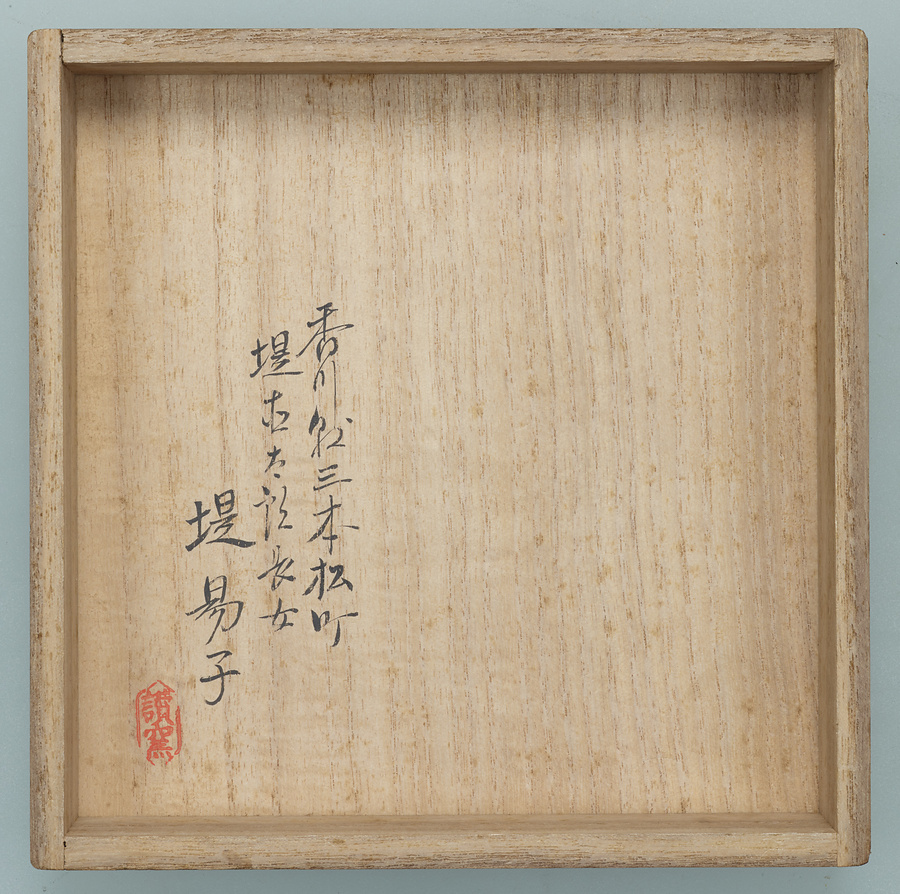 香川縣三本松町
堤吉太郎長女
堤易子
讃窯